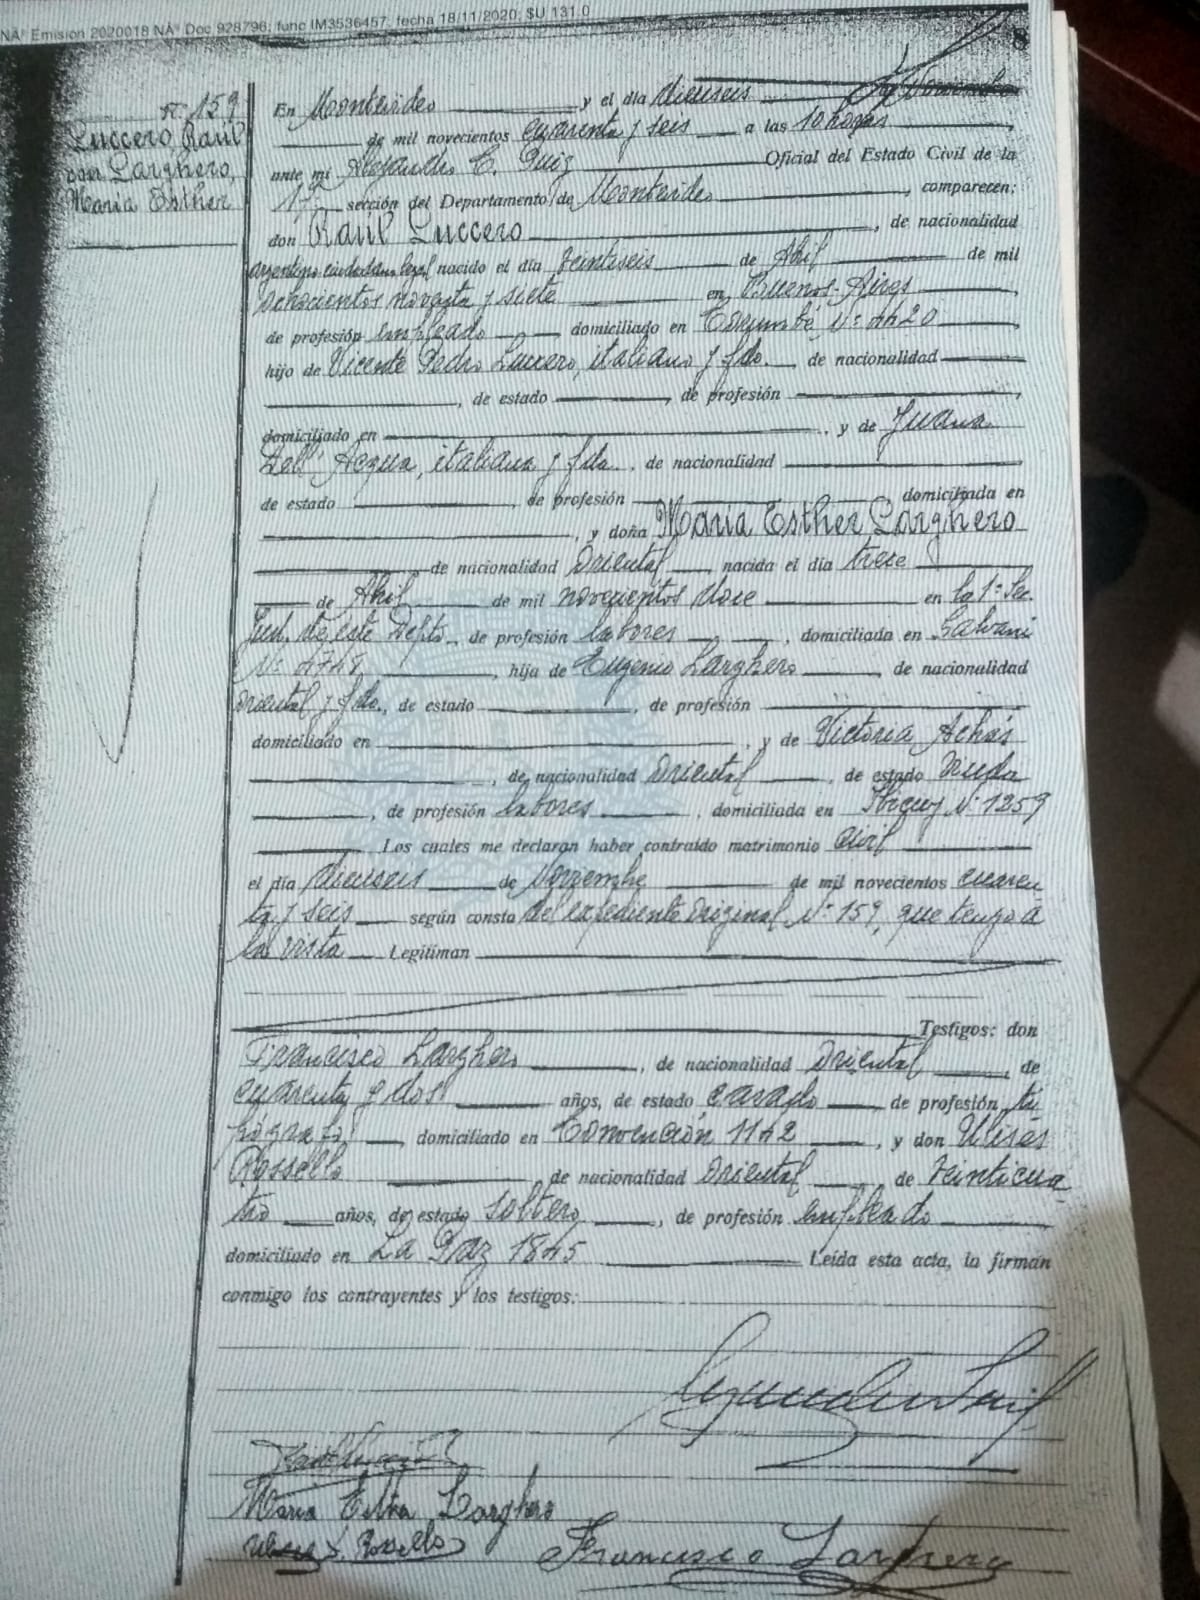 NÂº Emision 2020018 NÂº Doc 928796; func IM3536457, fecha 18/11/2020; $U 131.0
8
N.º 159
Luccero, Raúl
con Larghero,
María Esther
En Montevideo y el día dieciseis de Noviembre
de mil novecientos cuarenta y seis a las 10 horas
ante mí Alejandro C. Ruiz Oficial del Estado Civil de la
17ª sección del Departamento de Montevideo, comparecen:
don Raúl Luccero, de nacionalidad
argentino ciudadano legal nacido el día veintiseis de Abril de mil
ochocientos noventa y siete en Buenos-Aires,
de profesión empleado domiciliado en Corumbé Nº 4420
hijo de Vicente Pedro Luccero, italiano y fdo. de nacionalidad
, de estado , de profesión
domiciliado en , y de Juana
Dell' Acqua, italiana y fda., de nacionalidad
de estado , de profesión domiciliada en
, y doña María Esther Larghero
de nacionalidad Oriental nacida el día trece
de Abril de mil novecientos doce en la 1ª Sec.
Jud. de este Depto., de profesión labores, domiciliada en Galvani
Nº 4748, hija de Eugenio Larghero, de nacionalidad
Oriental y fdo., de estado , de profesión
domiciliado en , y de Victoria Achás
, de nacionalidad Oriental, de estado viuda
, de profesión labores, domiciliada en Nº 1259
Los cuales me declaran haber contraído matrimonio Civil
el día dieciseis de Noviembre de mil novecientos cuaren
ta y seis según consta del expediente original Nº 159, que tengo a
la vista Legitiman
Testigos: don
Francisco Larghero, de nacionalidad Oriental, de
cuarenta y dos años, de estado casado de profesión ti
pógrafo, domiciliado en Convención 1142, y don Ulises
Rossello de nacionalidad Oriental, de veinticua
tro años, de estado soltero, de profesión empleado
domiciliado en La Paz 1845 Leída esta acta, la firman
conmigo los contrayentes y los testigos:
María Esther Larghero
Rossello Francisco Larghero